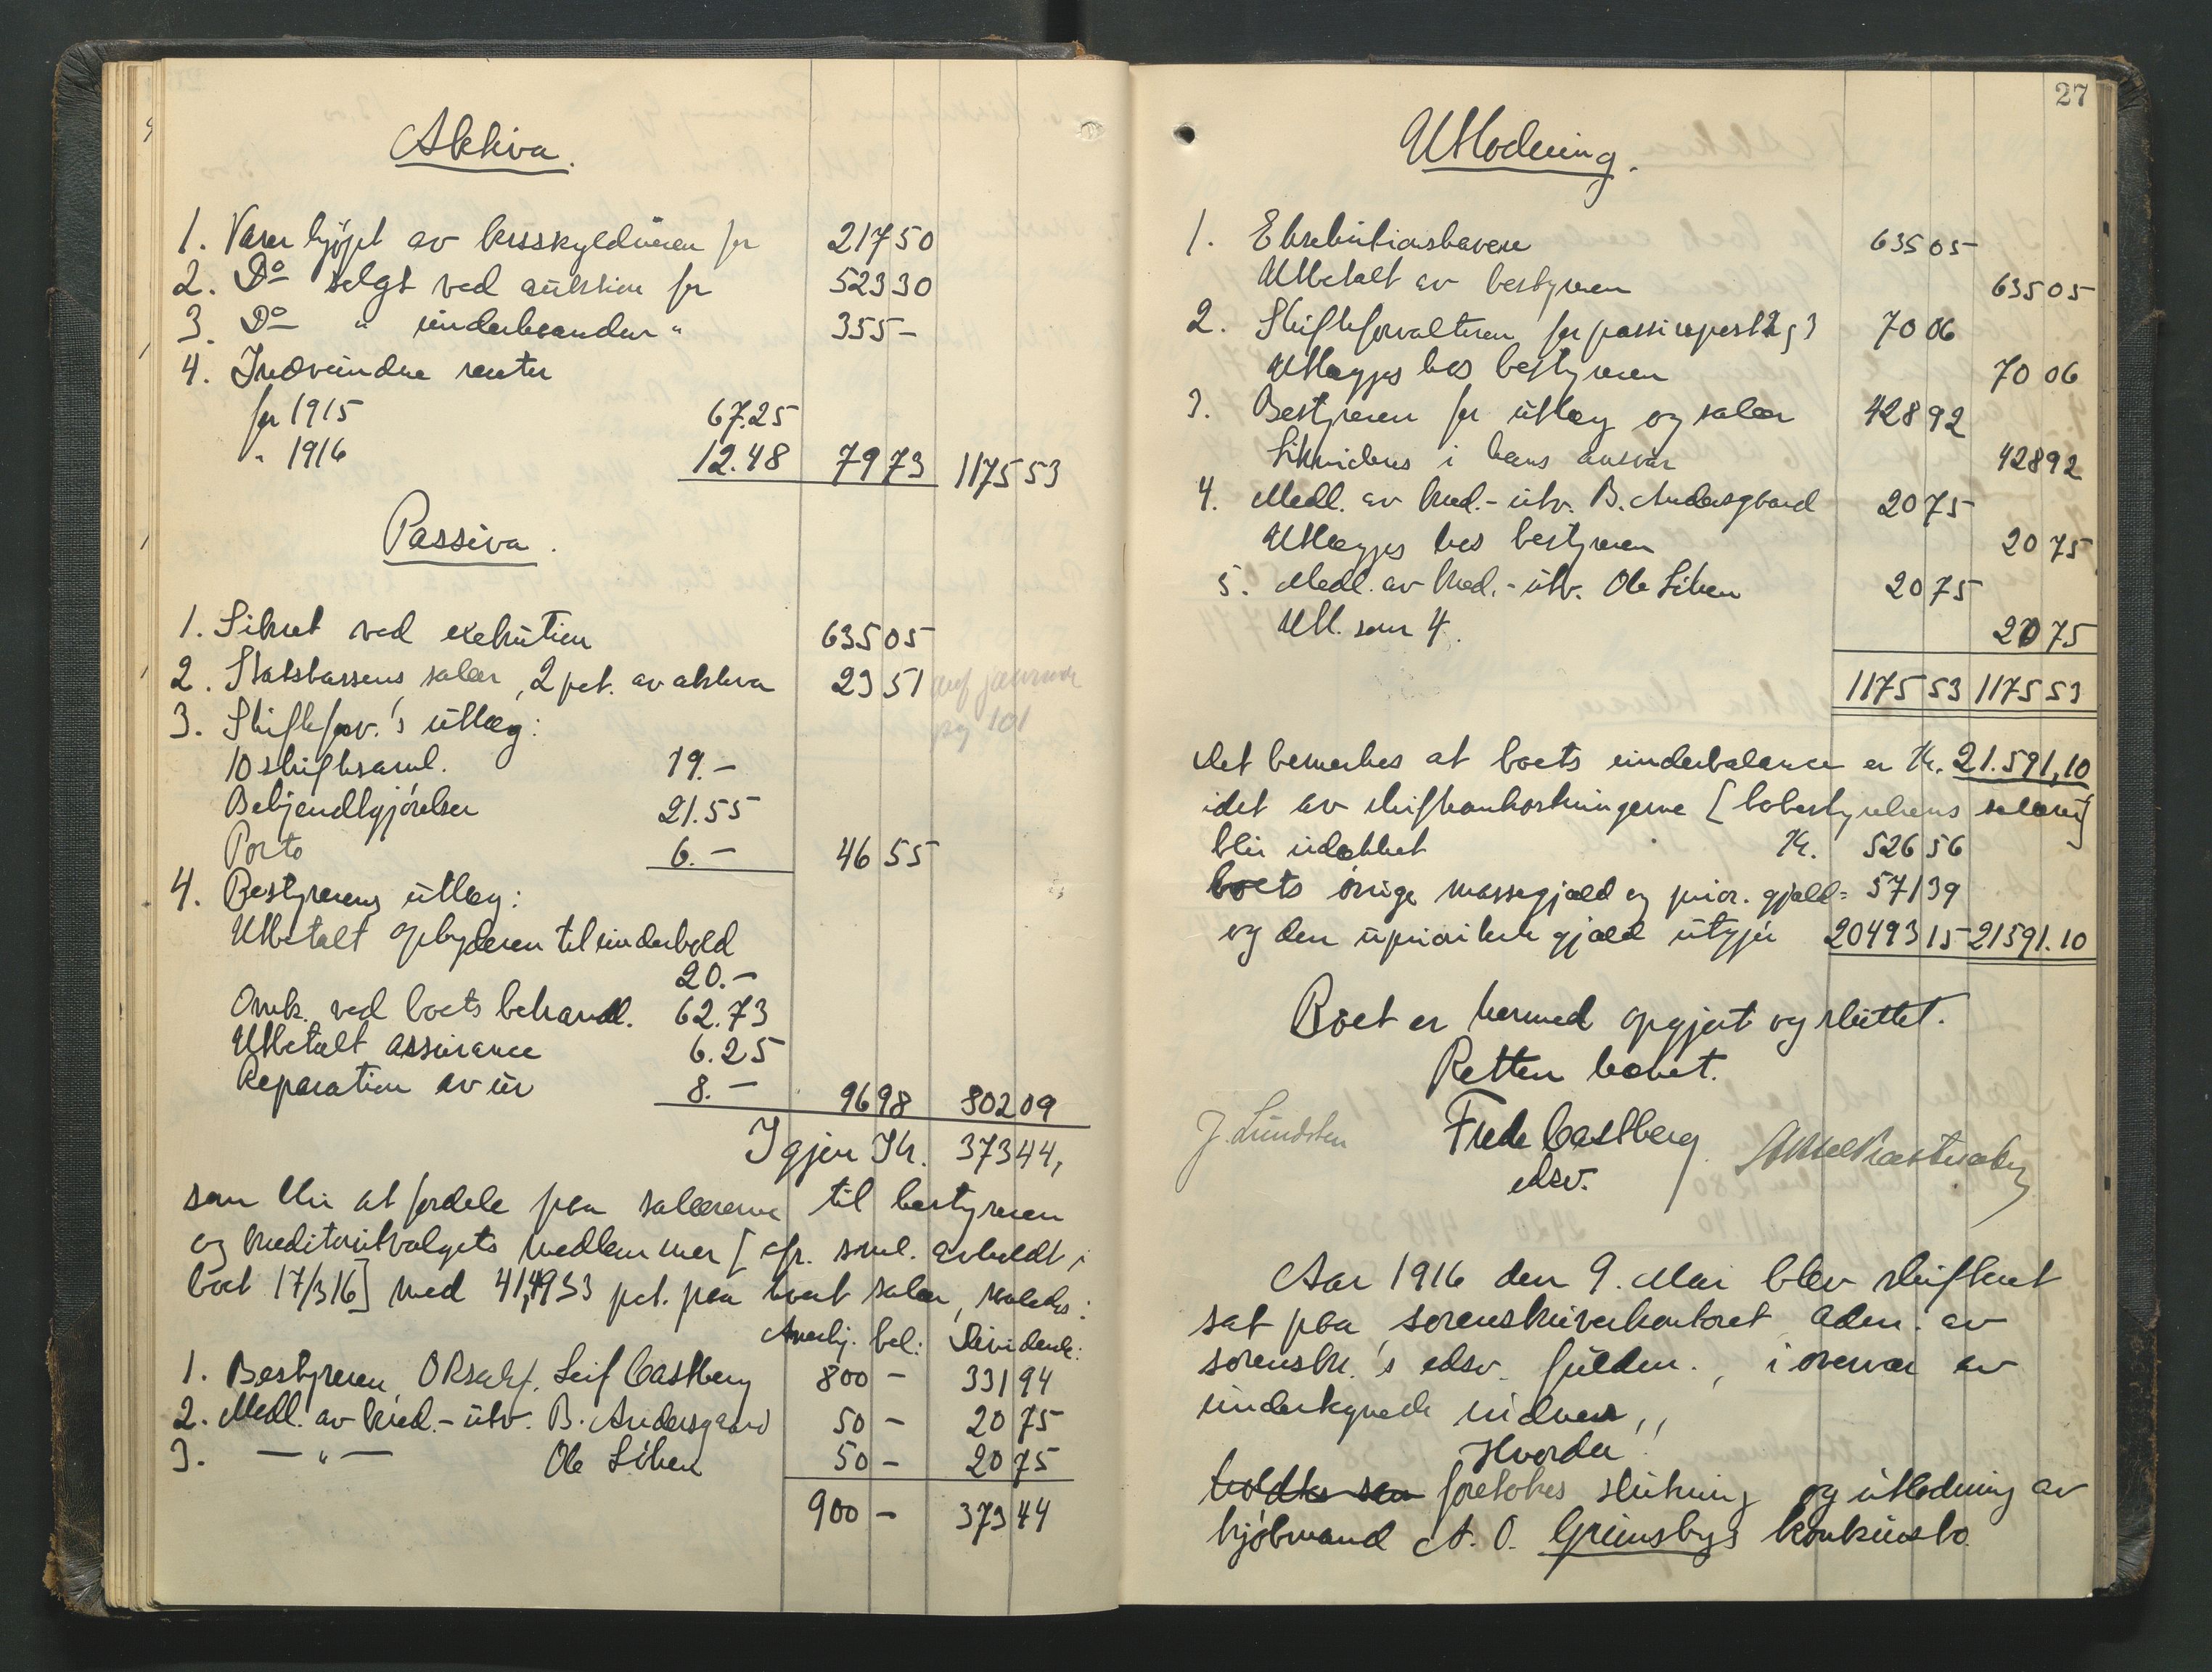 Aktiva.
1. Varer kjøpt av krisskyldneren for 217 50
2. Do solgt ved auktion for 523 30
3. Do " underhaanden " 355 –
4. Indvundne renter
for 1915 67.25
" 1916 12.48 79 73 1175 53
Passiva.
1. Sikret ved exekution 635 05
2. Statskassens salær, 2 pct. av aktiva 23 51
pag 101
3. Skifteforv.'s utlæg:
10 skiftesaml. 19.–
Bekjendtgjørelser 21.55
Porto 6.– 46 55
4. Bestyrerens utlæg:
Utbetalt opbyderen til underhold
20.–
Omk. ved boets behandl. 62.73
Utbetalt assurance 6.25
Reparation av ur 8.– 96 98 802 09
Igjen Kr. 373 44,
som blir at fordele paa salærerne til bestyreren
og kreditorutvalgets medlemmer [cfr. saml. avholdt i
boet 17/3 16] med 41,4933 pct. paa hvert salær, saaledes:
Anerkj. bel: Dividende:
1. Bestyreren, ORsakf. Leif Castberg 800 – 331 94
2. Medl. av kred.-utv. B. Andersgaard 50 – 20 75
3. — " — Ole Löken 50 – 20 75
900 – 373 44
27
Utlodning.
1. Eksekutionshavere 635 05
Utbetalt av bestyreren 635 05
2. Skifteforvalteren for passivapost 2 og 3 70 06
Utlægges hos bestyreren 70 06
3. Bestyreren for utlæg og salær 428 92
Likvideres i hans ansvar 428 92
4. Medl. av kred.-utv. B. Andersgaard 20 75
Utlægges hos bestyreren 20 75
5. Medl. av kred.-utv. Ole Löken 20 75
Utl. som 4. 20 75
1175 53 1175 53
Det bemerkes at boets underbalance er Kr. 21.591,10
idet av skifteomkostningerne [bobestyrelsens salærer]
blir udækket Kr. 526 56
boets øvrige massegjæld og prior. gjæld = 571 39
og den upriorterte gjæld utgjør 20493 15 21591.10
Boet er hermed opgjort og sluttet.
Retten hævet.
J. Lundsten Frede Castberg
edsv.
Aar 1916 den 9. Mai blev skifteret
sat paa sorenskriverkontoret adm. av
sorenskr.'s edsv. fuldm., i overvær av
undertegnede vidner,,
Hvorda!!
holdtes som foretokes slutning og utlodning av
kjøbmand A. O. Grimsbys konkursbo.